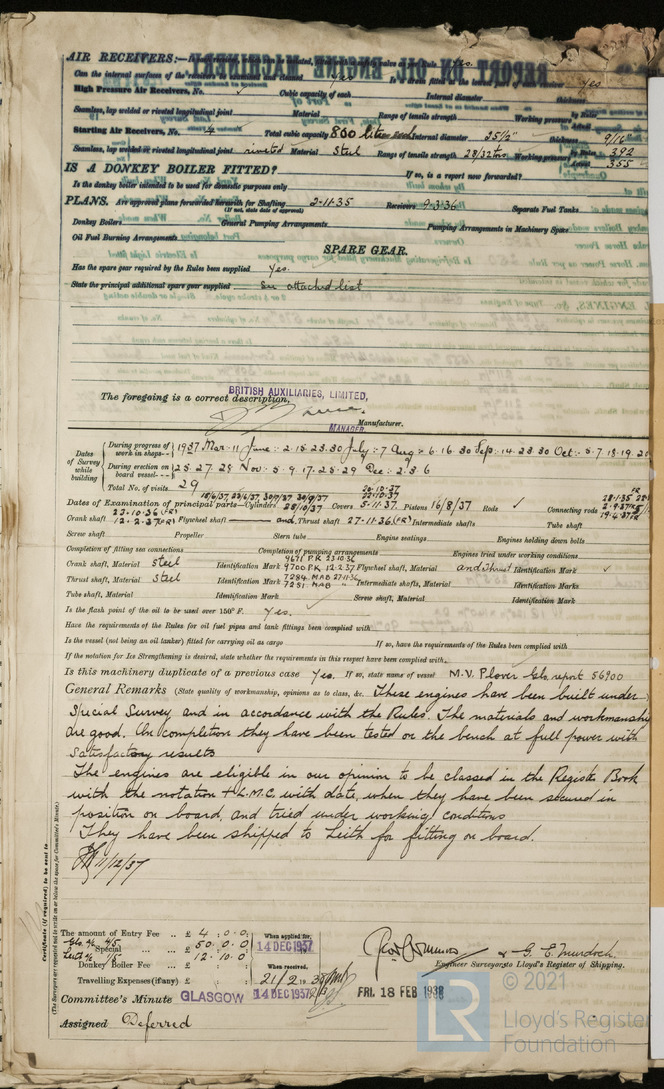 AIR RECEIVERS:— Yes.
Can the internal surfaces of the receivers be examined and cleaned Yes Is a drain fitted at the lowest part of each receiver Yes
High Pressure Air Receivers, No. ✓ Cubic capacity of each Internal diameter thickness
Seamless, lap welded or riveted longitudinal joint Material Range of tensile strength Working pressure by Rules
Starting Air Receivers, No. 4 Total cubic capacity 800 litres Internal diameter 25½" thickness 9/16
Seamless, lap welded or riveted longitudinal joint riveted Material Steel Range of tensile strength 28/32 tons Working pressure by Rules 392
Actual 355
IS A DONKEY BOILER FITTED? If so, is a report now forwarded?
Is the donkey boiler intended to be used for domestic purposes only
PLANS. Are approved plans forwarded herewith for Shafting 2-11-35 Receivers 9-3-36 Separate Fuel Tanks
(If not, state date of approval)
Donkey Boilers General Pumping Arrangements Pumping Arrangements in Machinery Space
Oil Fuel Burning Arrangements
SPARE GEAR.
Has the spare gear required by the Rules been supplied Yes.
State the principal additional spare gear supplied See attached list
BRITISH AUXILIARIES, LIMITED,
The foregoing is a correct description,
Manufacturer.
MANAGER
Dates of Survey while building
During progress of work in shops - - 1937 Mar-11 June:-2.15.23.30 July:-7 Aug:-6.16.30 Sep:-14.23.30 Oct:-5.7.18.19.20
During erection on board vessel - - - 25.27.28 Nov:-5.9.17.25.29 Dec:-2.3.6
Total No. of visits 29
Dates of Examination of principal parts—Cylinders 28/10/37 Covers 5.11.37 Pistons 16/8/37 Rods ✓ Connecting rods
Crank shaft 23.10.36 (FR) 12.2.37 (FR) Flywheel shaft and Thrust shaft 27.11.36 (FR) Intermediate shafts Tube shaft
Screw shaft Propeller Stern tube Engine seatings Engines holding down bolts
Completion of fitting sea connections Completion of pumping arrangements Engines tried under working conditions
Crank shaft, Material Steel Identification Mark 9671 P.K 23.10.36 9700 PK 12.2.37 Flywheel shaft, Material and Thrust Identification Mark ✓
Thrust shaft, Material Steel Identification Mark 7284 MAB 27.11.36 7251 MAB " Intermediate shafts, Material Identification Marks
Tube shaft, Material Identification Mark Screw shaft, Material Identification Mark
Is the flash point of the oil to be used over 150° F. Yes.
Have the requirements of the Rules for oil fuel pipes and tank fittings been complied with
Is the vessel (not being an oil tanker) fitted for carrying oil as cargo If so, have the requirements of the Rules been complied with
If the notation for Ice Strengthening is desired, state whether the requirements in this respect have been complied with.
Is this machinery duplicate of a previous case Yes. If so, state name of vessel M.V. Plover Glo. report 56900
General Remarks (State quality of workmanship, opinions as to class, &c. These engines have been built under
Special Survey and in accordance with the Rules. The materials and workmanship
are good. On completion they have been tested on the bench at full power with
satisfactory results
The engines are eligible in our opinion to be classed in the Register Book
with the notation + L.M.C. with date, when they have been secured in
position on board, and tried under working conditions
They have been shipped to Leith for fitting on board.
11/12/37
Certificate (if required) to be sent to
(The Surveyors are requested not to write on or below the space for Committee's Minute.)
The amount of Entry Fee .. £ 4 : 0 : 0
Glo a/c 4/5 Special £ 50 : 0 : 0
Leith a/c 1/5 12 : 10 : 0
Donkey Boiler Fee £
Travelling Expenses (if any) £
When applied for, 14 DEC 1937
When received, 21/2 1938
G. C. Murdoch.
Engine Surveyors to Lloyd's Register of Shipping.
Committee's Minute GLASGOW 14 DEC 1937 FRI. 18 FEB 1938
Assigned Deferred
© 2021
LR
Lloyd's Register
Foundation